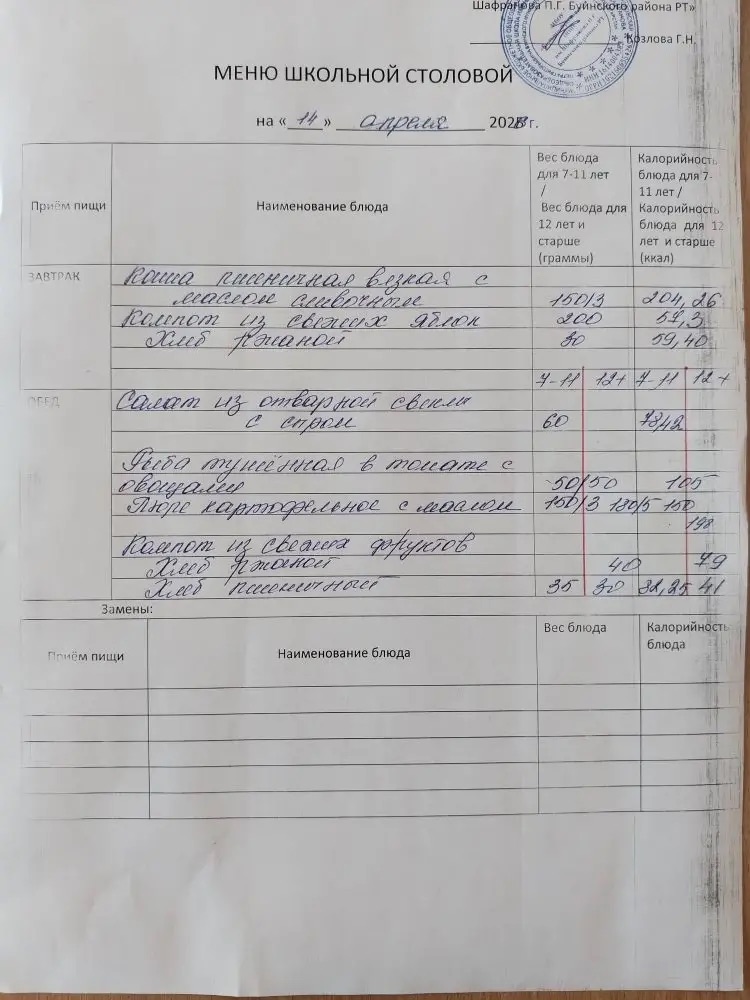 Шафранова П.Г. Буинского района РТ»
Козлова Г.Н.
МЕНЮ ШКОЛЬНОЙ СТОЛОВОЙ
на « 14 » апреля 2023 г.
Приём пищи Наименование блюда Вес блюда для 7-11 лет / Вес блюда для 12 лет и старше (граммы) Калорийность блюда для 7-11 лет / Калорийность блюда для 12 лет и старше (ккал)
ЗАВТРАК Каша пшеничная вязкая с
маслом сливочным 150/3 204,26
Компот из свежих яблок 200 57,3
Хлеб ржаной 30 59,40
7-11 12+ 7-11 12+
ОБЕД Салат из отварной свеклы
с сыром 60 78,42
Рыба тушённая в томате с
овощами 50/50 105
Пюре картофельное с маслом 150/3 180/5 150
198
Компот из свежих фруктов
Хлеб ржаной 40 79
Хлеб пшеничный 35 30 82,25 41
Замены:
Приём пищи Наименование блюда Вес блюда Калорийность блюда